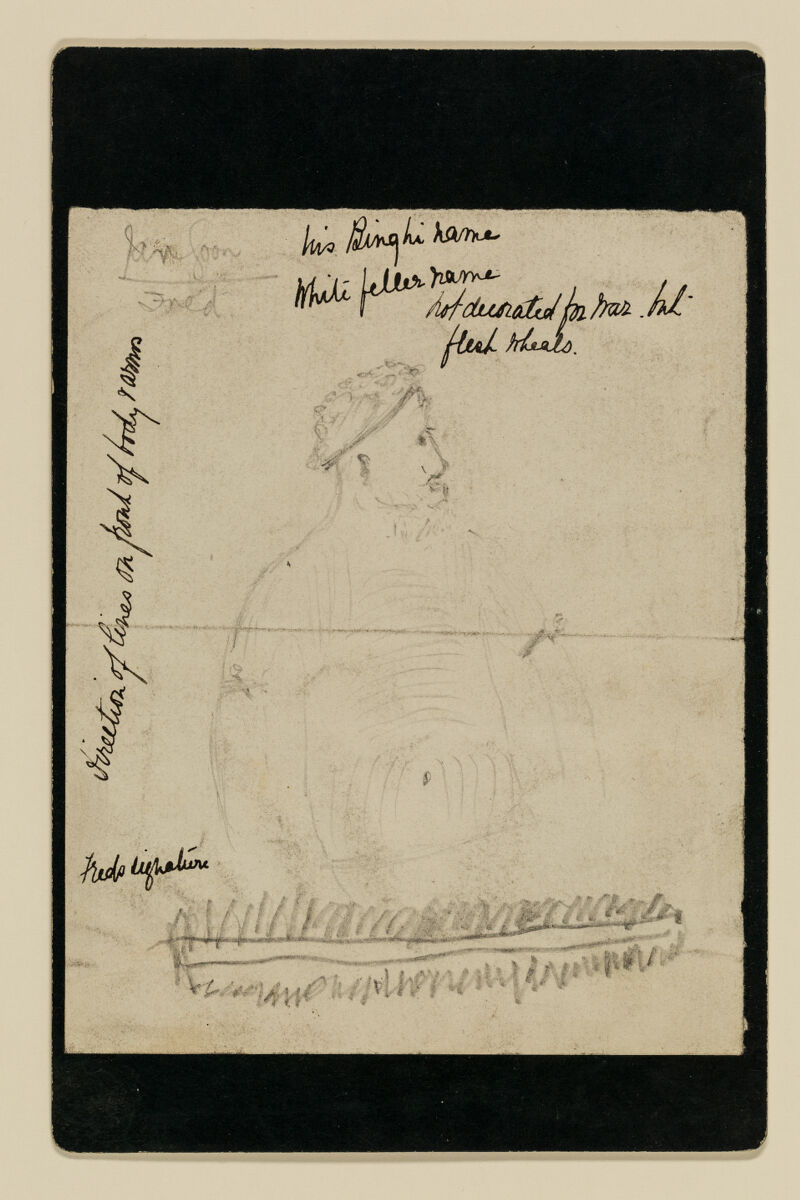 his Binghi name
Fred
White feller name
not decorated for War. but
flesh wheals.
direction of lines on front of body & arms
Freds signature